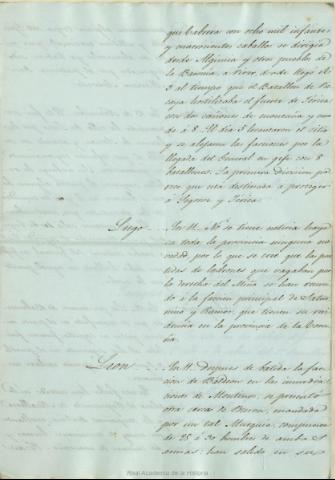 que Cabrera con ocho mil infantes
y cuatrocientos caballos se dirigia
desde Algimia y otros pueblos de
la Baronia a                llegó el
3 al tiempo que el Batallon de
             el fuerte de
con dos cañones de montaña y uno
de á 8. El dia 5 levantaron el sitio
y se alejaron las facciones por la
llegada del General en gefe con 8
batallones. La primera division pa
rece que está destinada a proteger
á Segorve y
Lugo_ En 11. No se tiene noticia haya
en toda la provincia ninguna no
vedad, por lo que se cree que las par
tidas de ladrones que vagaban por
la derecha del Miño se han reuni
do á la faccion principal de Satur
nino y Ramos que tienen su re
sidencia en la provincia de la Coru
ña.
Leon_ En 11. Despues de batida la fac
cion de        en las inmedia
ciones de               se presentó
otra cerca de           mandada
por un tal              compuesta
de 25 á 30 hombres de ambas
armas: han salido en su
Real Academia de la Historia